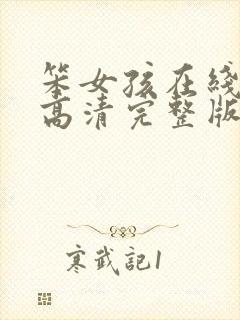 笨女孩在线
高清完整版
寒武記1